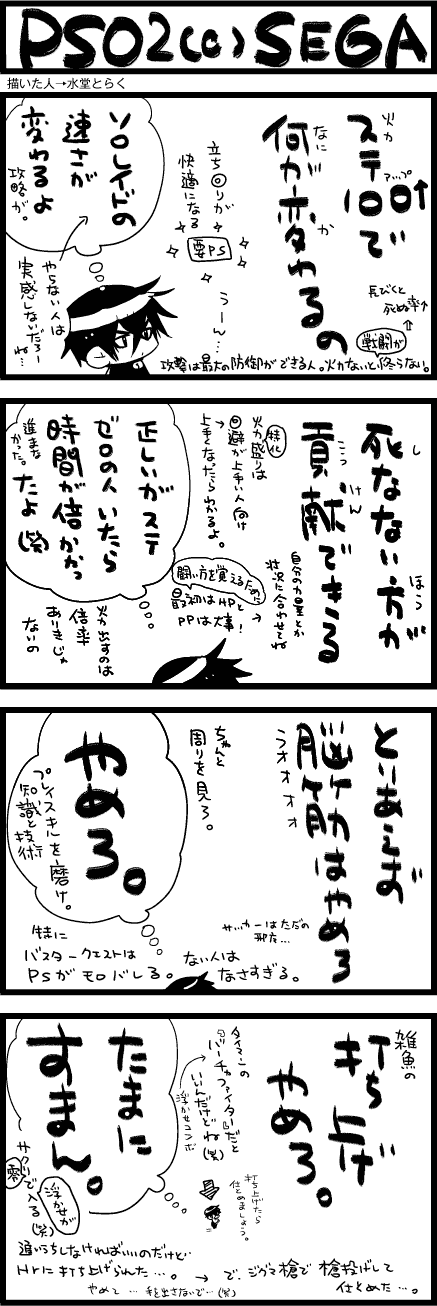 PSO2(c)SEGA
描いた人→水堂とらく
火力
ステ100↑で
アップ
何が変わるの
なに
か
長びくと
死ぬ率↑
戦闘が
攻撃は最大の防御ができる人。火力ないと終らない。
立ち回りが
快適になる
要PS
うーん…
ソロレイドの
速さが
変わるよ
攻略が。
やらない人は
実感しないだろー
ね…
死なない方が
し
ほう
貢献できる
こう
けん
自分の力量とか
状況に合わせてね
特化
火力盛りは
回避が上手い人向け
上手くなったらわかるよ。
闘い方を覚えるために
最初はHPと
PPは大事!
正しいがステ
ゼロの人いたら
時間が倍かかっ
たよ(笑)
進まな
かった。
火力出すのは
倍率
ありきじゃ
ないの
とりあえず
脳筋はやめろ
うオォォォ
サッカーはただの
邪魔…
ちゃんと
周りを見ろ。
やめろ。
プレイスキルを磨け。
知識と技術
特に
バスタークエストは
PSがモロバレる。
ない人は
なさすぎる。
雑魚の
打ち上げ
やめろ。
タイマンの
『バーチャファイター』だと
いいんだけどね(笑)
浮かせコンボ
打ち上げたら
仕とめましょう。
たまに
すまん。
サクッで入る(笑)
零
浮かせが
追いうちしなければいいのだけど…
Hrに打ち上げられんた…。→で、ジグマ槍で槍投げして
仕とめた…。
やめて…手を出さないで…(笑)